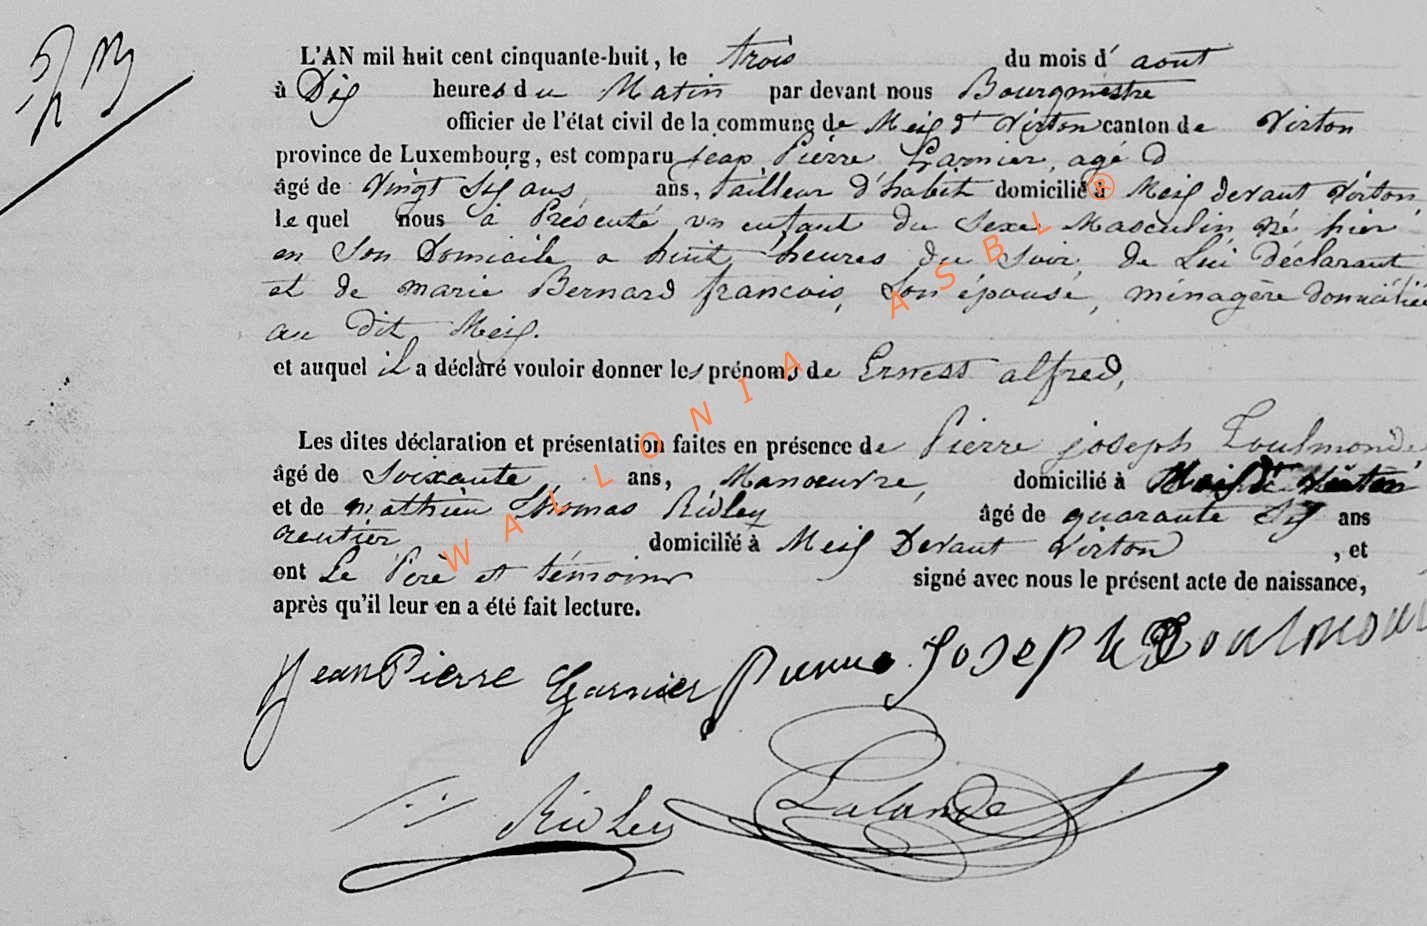 L'AN mil huit cent cinquante-huit, le trois du mois d' aout
à Dix heures du Matin par devant nous Bourgmestre
officier de l'état civil de la commune de Meix dt Virton canton de Virton
province de Luxembourg, est comparu jean Pierre Garnier, agé d
âgé de Vingt Six ans ans, tailleur d'habit domicilié à Meix devant Virton
le quel nous à Présenté un enfant du Sexe Masculin né hier
en Son Domicile a huit heures du Soir, de Lui déclarant
et de marie Bernard françois, Son épouse, ménagère domiciliée
au dit Meix.
et auquel il a déclaré vouloir donner les prénoms de Ernest alfred,
Les dites déclaration et présentation faites en présence de Pierre joseph Toulmonde
âgé de Soixante ans, Manoeuvre, domicilié à Meix dt Virton
et de mathieu Thomas Ridley âgé de quarante Six ans
rentier domicilié à Meix Devant Virton , et
ont Le Père et témoins signé avec nous le présent acte de naissance,
après qu'il leur en a été fait lecture.
Jean Pierre Garnier Pierre Joseph Toulmond
Ridley Lalande
WALLONIA ASBL ®